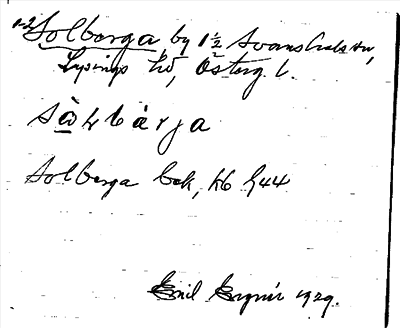 1-2 Solberga, by 1½ Svanshals sn,
Lysings hd, Österg. l.
sὼɫbårja
Solberga bek, hb 944
Emil 1929.